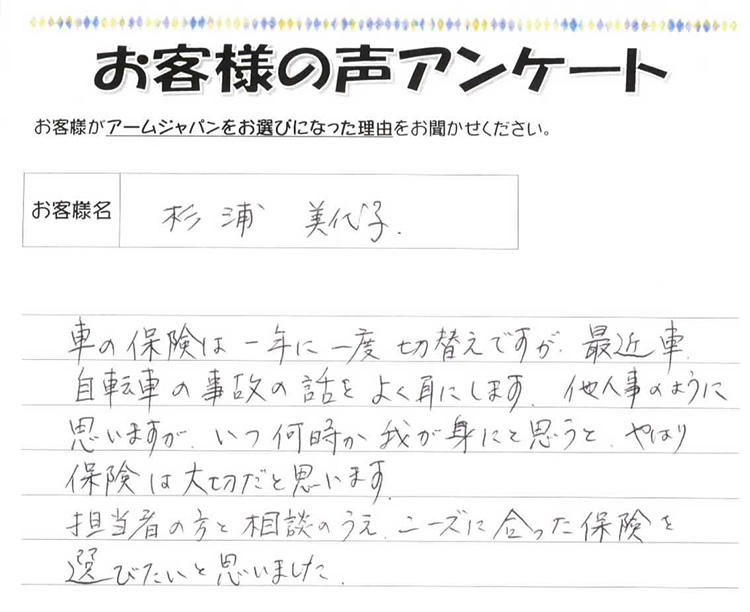 お客様の声アンケート
お客様がアームジャパンをお選びになった理由をお聞かせください。
お客様名 杉浦 美代子.
車の保険は一年に一度切替えですが、最近車、
自転車の事故の話をよく耳にします。他人事のように
思いますが、いつ何時か我が身にと思うと、やはり
保険は大切だと思います。
担当者の方と相談のうえ、ニーズに合った保険を
選びたいと思いました。